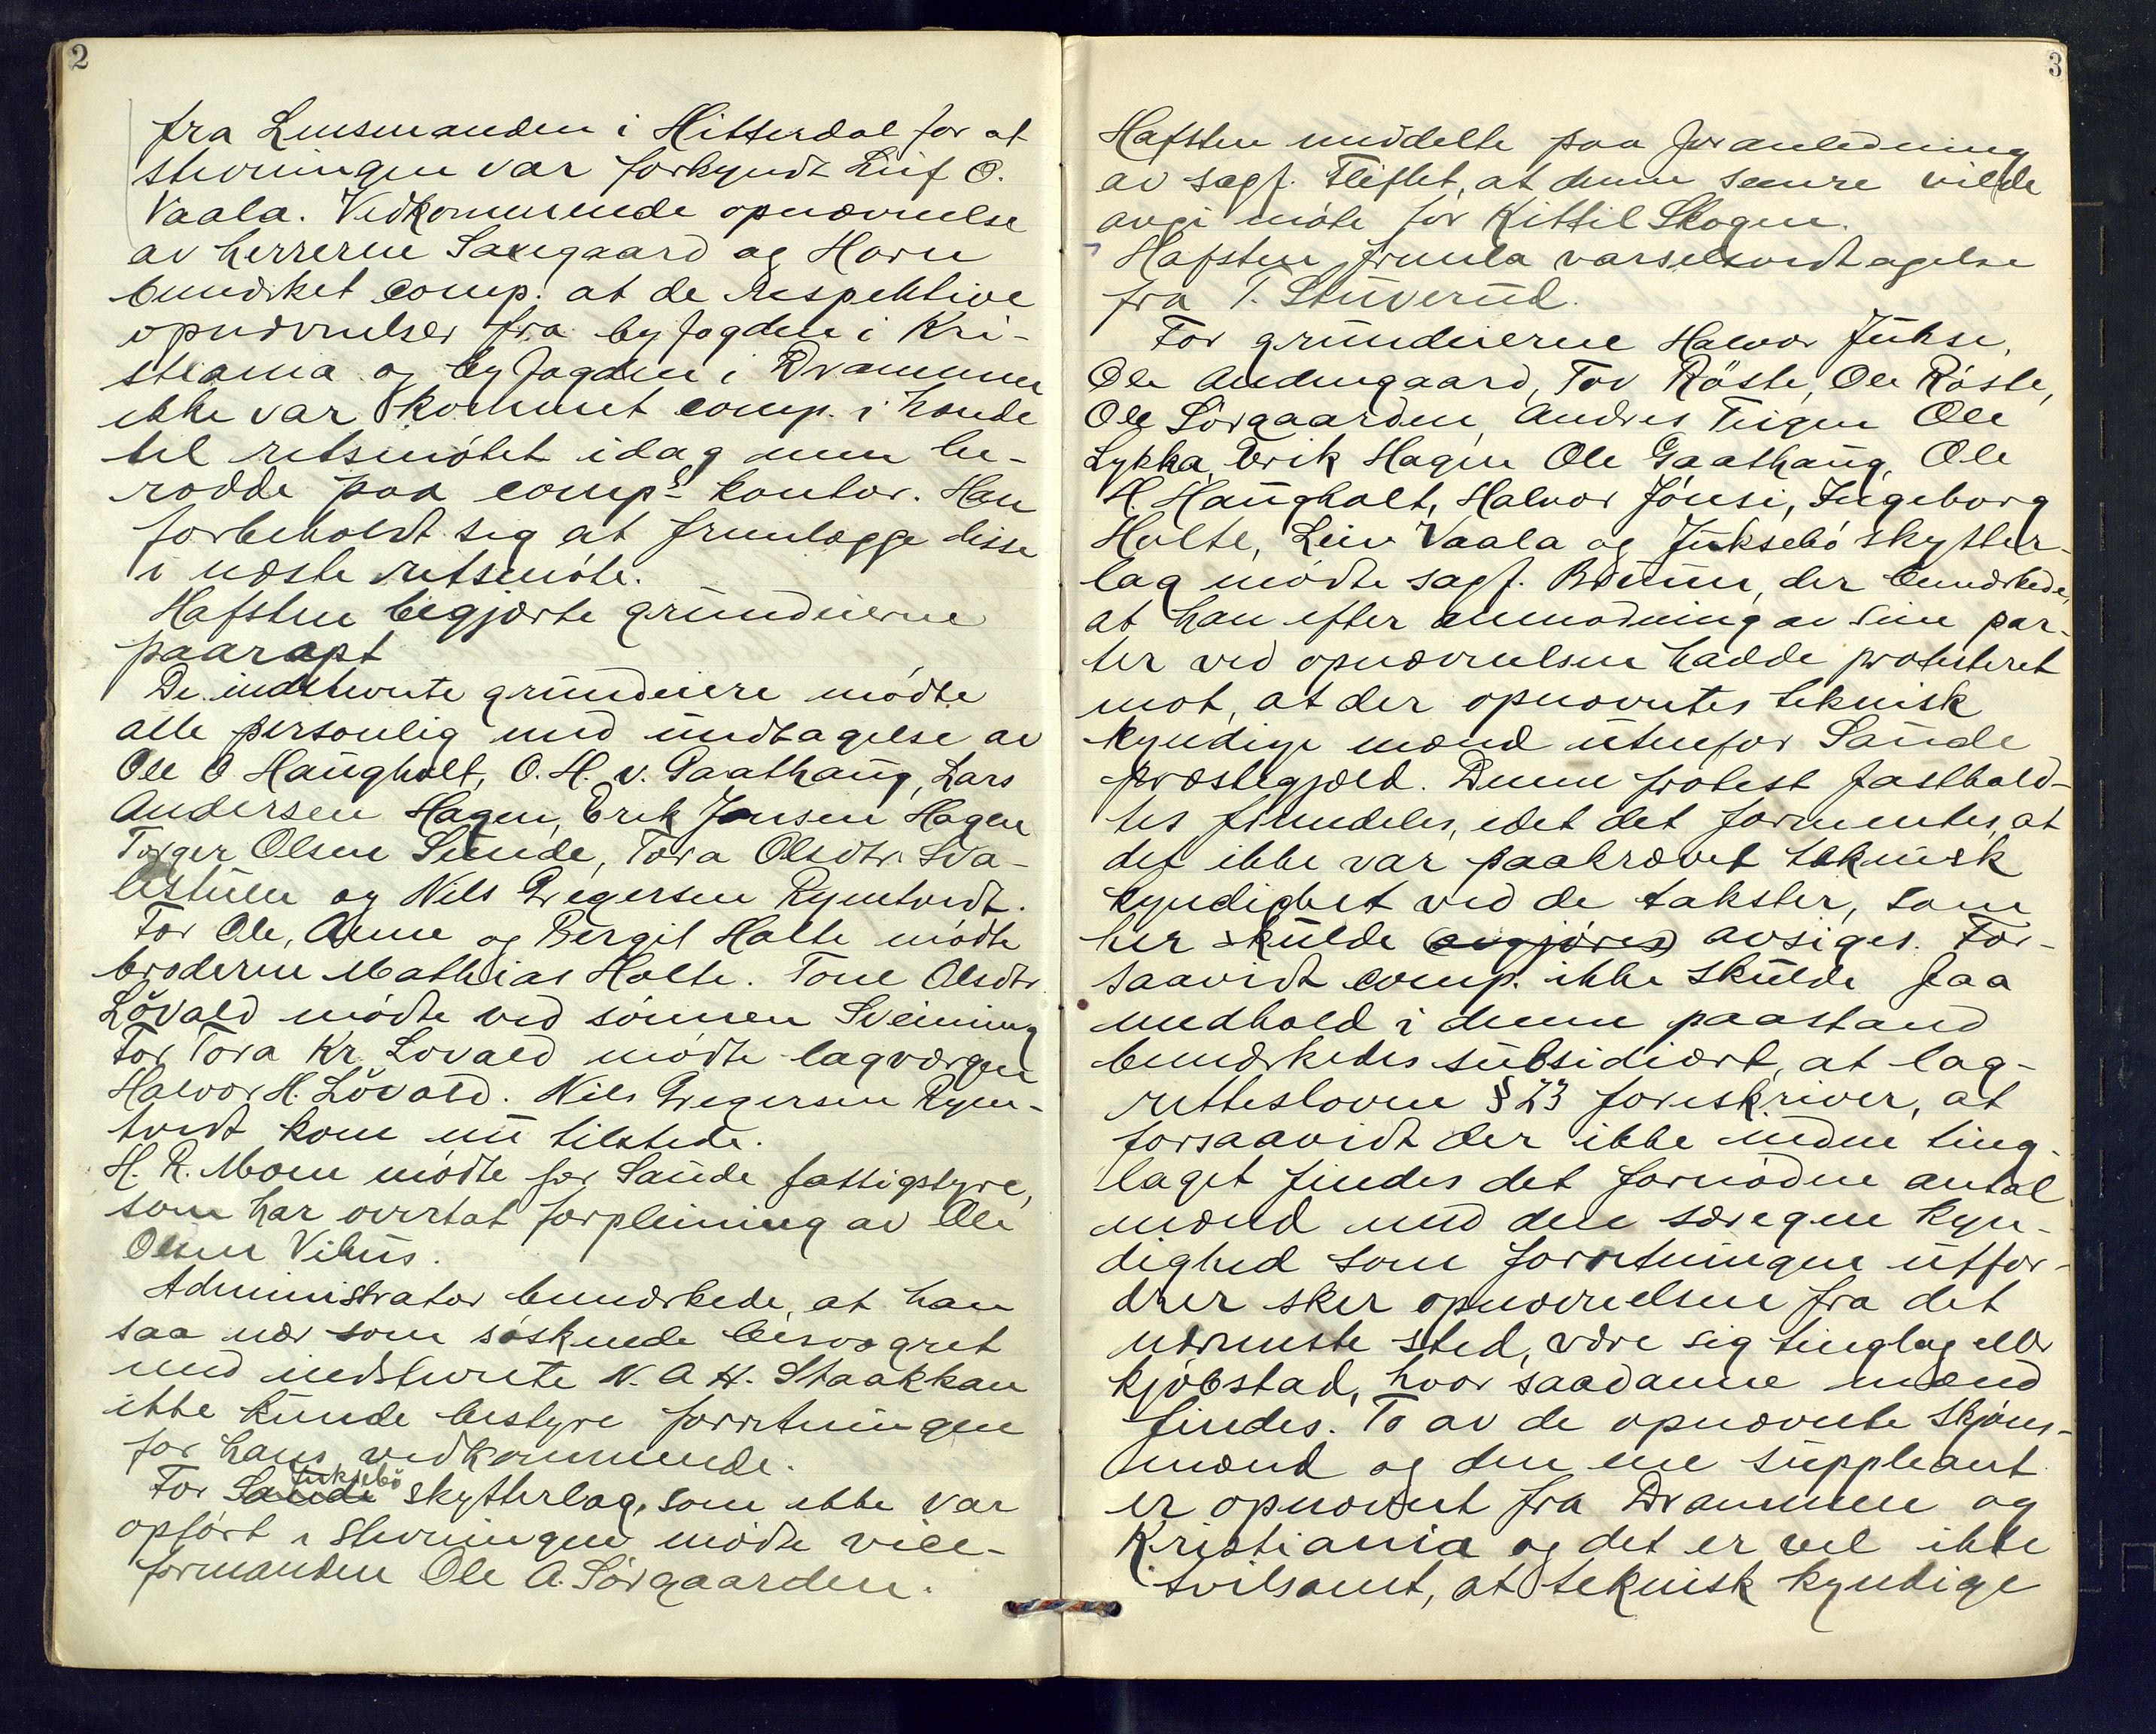 2
fra Lensmanden i Hitterdal for at
stevningen var forkyndt Leif O.
Vaala. Vedkommende opnævnelse
av herrerne Saugaard og Horn
bemerket comp. at de respektive
opnævnelser fra byfogden i Kri-
stiania og byfogden i Drammen
ikke var kommet comp. i hænde
til retsmötet idag men be-
rodde paa comps kontor. Han
forbeholdt sig at fremlægge disse
i næste retsmöte.
Hafsten begjærte grundeierne
paaropt
De indstevnte grundeiere mödte
alle personlig med undtagelse av
Ole O Haugholt, O. H. v. Gaathaug, Lars
Andersen Hagen, Erik Jonsen Hagen
Torger Olsen Sunde, Tora Olsdtr. Sva-
lestulen og Nils Gregersen Rymtvedt.
For Ole, Anne og Bergit Holte mödte
broderen Mathias Holte. Tone Olsdtr
Lövald mödte ved sönnen Sveinung
For Tora Kr. Lovald mödte lagværgen
Halvor H. Lövald. Nils Gregersen Rym-
tvedt kom nu tilstede.
H. R. Moen mödte for Saude fattigstyre,
som har overtat forpleining av Ole
Olsen Vibus.
Administrator bemerkede, at han
saa nær som söskende besvogret
med indstevnte N. A H. Staakkan
ikke kunde bestyre forretningen
for hans vedkommende.
Juksebö
For Saude skytterlag, som ikke var
opfört i stevningen mödte vice-
formanden Ole A. Sörgaarden.
3
Hafsten meddelte paa foranledning
av sagf. Fliflet, at denne senere vilde
avgi möte for Kittil Skogen.
Hafsten fremla varselsvedtagelse
fra T. Stuverud.
For grundeierne Halvor Jukse,
Ole Andengaard, Tov Röste, Ole Röste,
Ole Sörgaarden, Andres Teigen Ole
Lykka, Erik Hagen Ole Gaathaug, Ole
H. Haugholt, Halvor Jönsi, Ingeborg
Holte, Leiv Vaala og Juksebö skytter-
lag mödte sagf. Bruun, der bemerkede,
at han efter anmodning av sine par-
ter ved opnævnelsen hadde protesteret
mot, at der opnævntes teknisk
kyndige mænd utenfor Saude
præstegjæld. Denne protest fasthold-
tes fremdeles, idet det formentes, at
det ikke var paakrævet teknisk
kyndighet ved de takster, som
her skulde (avgjöres) avsiges. For-
saavidt comp. ikke skulde faa
medhold i denne paastand
bemerkedes subsidiært, at lag-
retteslovens § 23 foreskriver, at
forsaavidt der ikke inden ting-
laget findes det fornödne antal
mænd med den særegne kyn-
dighed som forretningen utfor-
drer sker opnævnelsen fra det
nærmeste sted, være sig tinglag eller
kjöbstad, hvor saadanne mænd
findes. To av de opnævnte skjöns-
mænd og den ene suppleant
er opnævnt fra Drammen og
Kristiania og det er vel ikke
tvilsomt, at teknisk kyndige